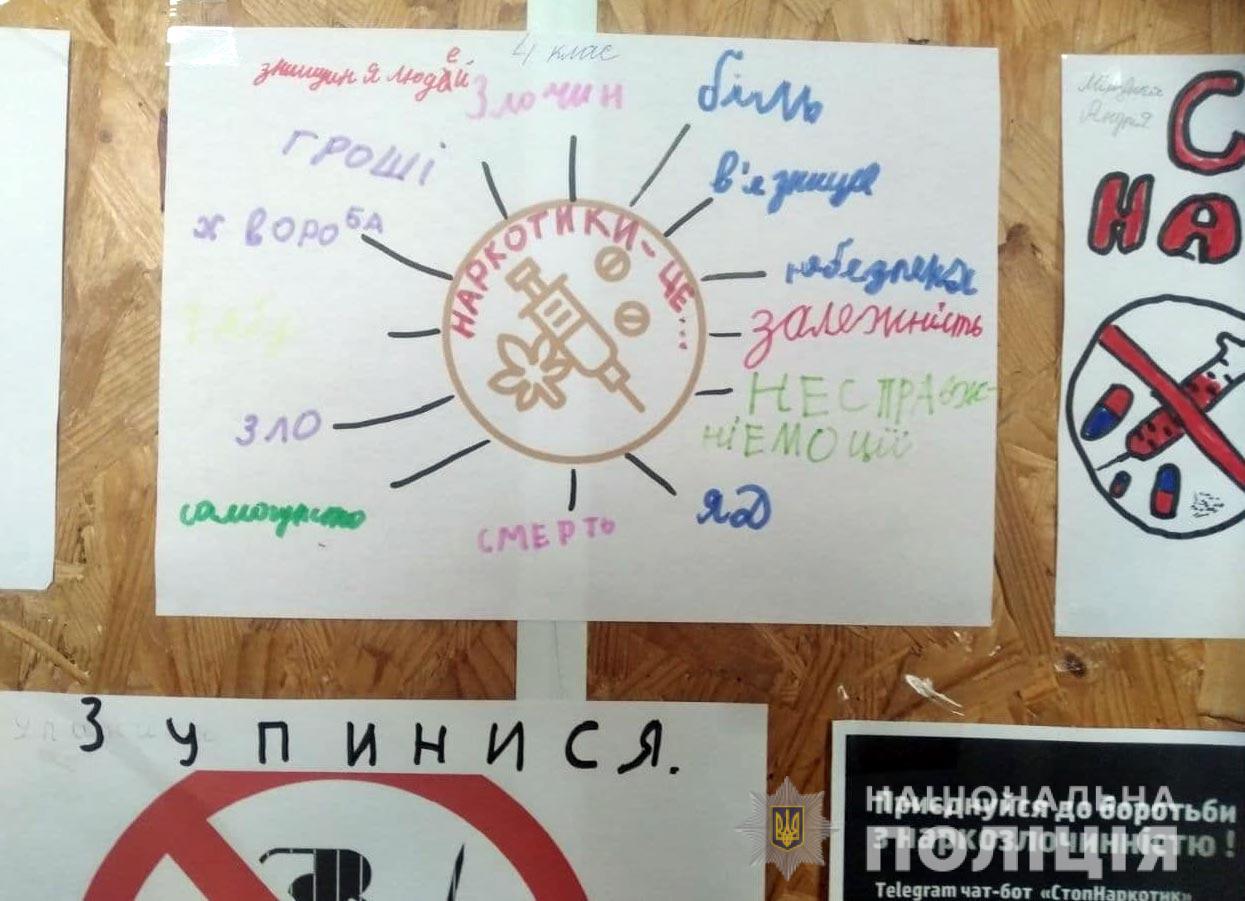 4 клас
знищиня людей
Злочин
біль
гроші
в'язниця
хвороба
НАРКОТИКИ-ЦЕ...
небезпека
залежність
зло
НЕСПРАВЖ-
НІ ЕМОЦІЇ
самогубство
смерть
яд
С
НА
Андрія
ЗУПИНИСЯ.
Приєднуйся до боротьби
з наркозлочинністю !
Telegram чат-бот «СтопНаркотик»
НАЦІОНАЛЬНА
ПОЛІЦІЯ